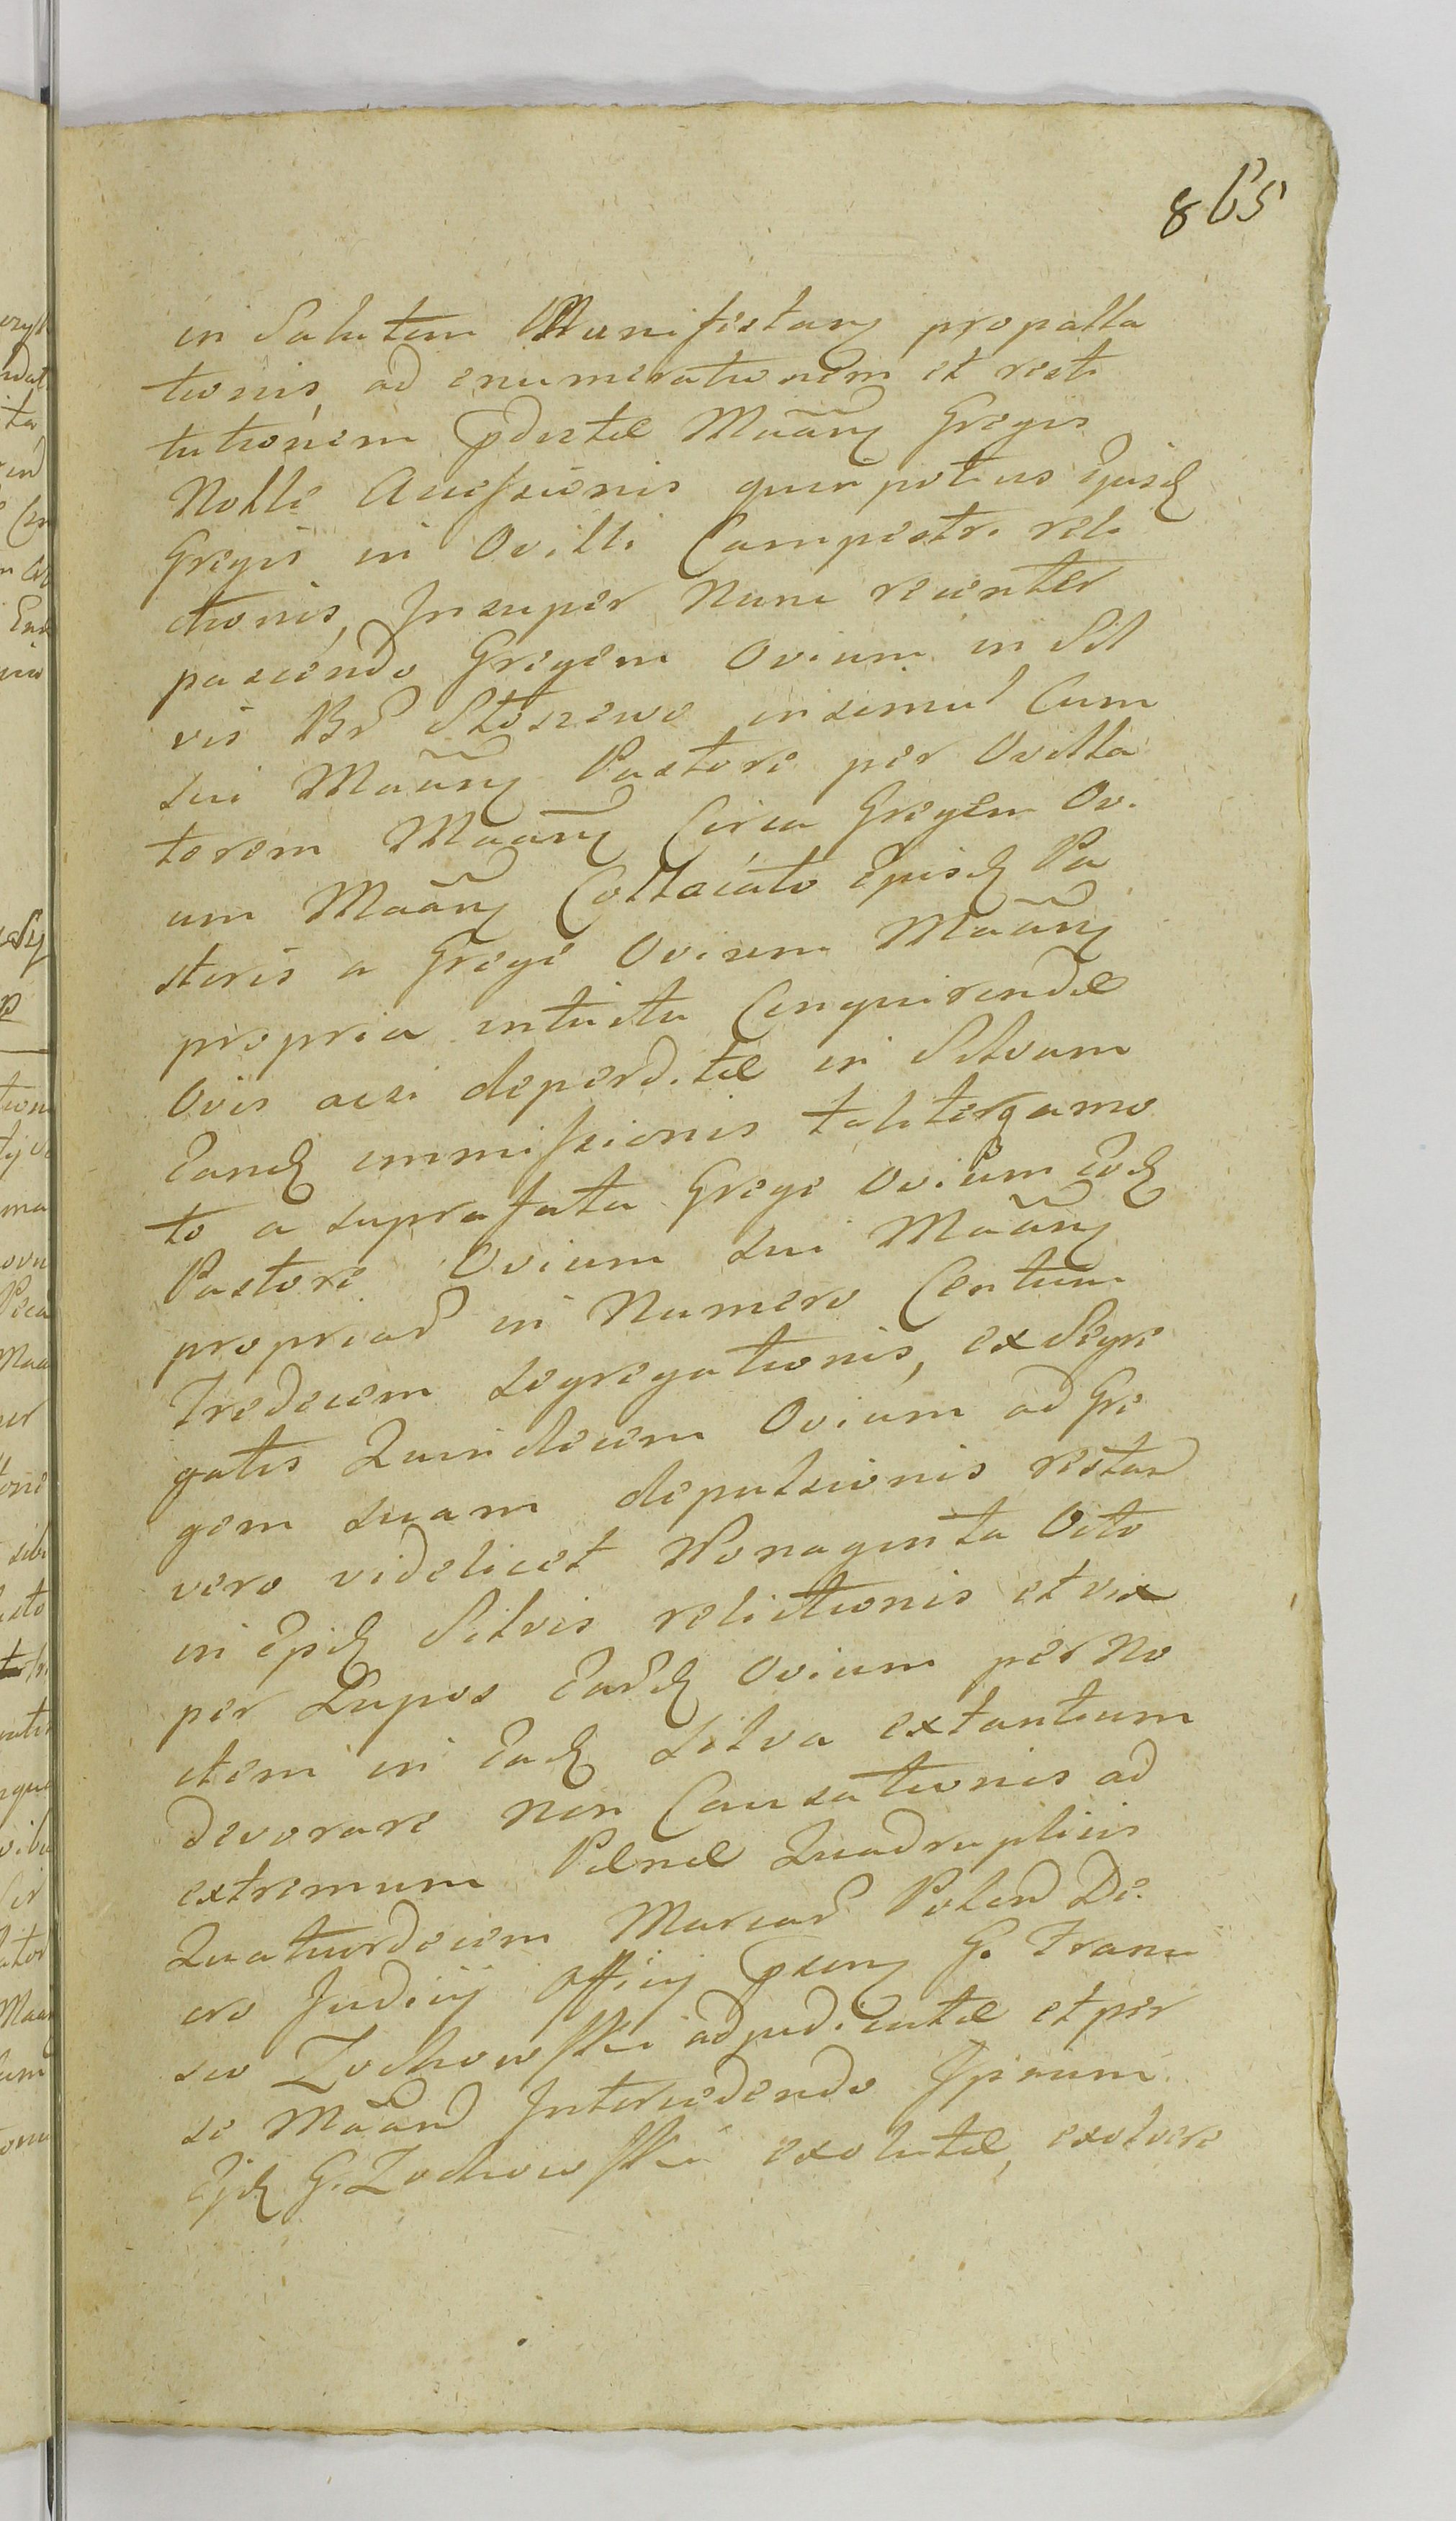 865
in Salutem Manifestang propalla
tionis, ad enumerationem et resti
tutionem pdictæ Maãng Gregis
Nolle Accessionis quin potius Ejusd
Gregis in Ovilli Campestri reli
ctionis, Insuper Nunc recenter
pascendo Gregem Ovium in Sil
vis Br Stoszewo insimul Cum
sui Maãng Pastore per Ovilla
torem Maãng Circa Gregem Ovi
um Maãng Collocato Ejusd Pa
storis a Grege Ovium Maãng
propria intuitu Conquirendæ
Ovis acsi deperditæ in Silvam
Eand immissionis taliterq amo
to a suprafata Grege Ovium Eod
Pastore Ovium sui Maãng
propriar in Numero Centum
Tredecem segregationis, ex Segre
gatis Quindecem Ovium ad Gre
gem suam depulsionis restan
vero videlicet Nonaginta Octo
in Ejsd Silvis relictionis et vix
per Lupos Eard Ovium per No
ctem in Ead Silva extantium
devorare non Causationis ad
extremum Pænæ Quadruplicis
Quatuordecem Marcar Polon De
cro Judicij Officij psung G. Franc
sco Zochowski adjudicatæ et per
se Maãn Intercedendo Ipsum
Ejd G. Zochowski exolutæ, exolvere